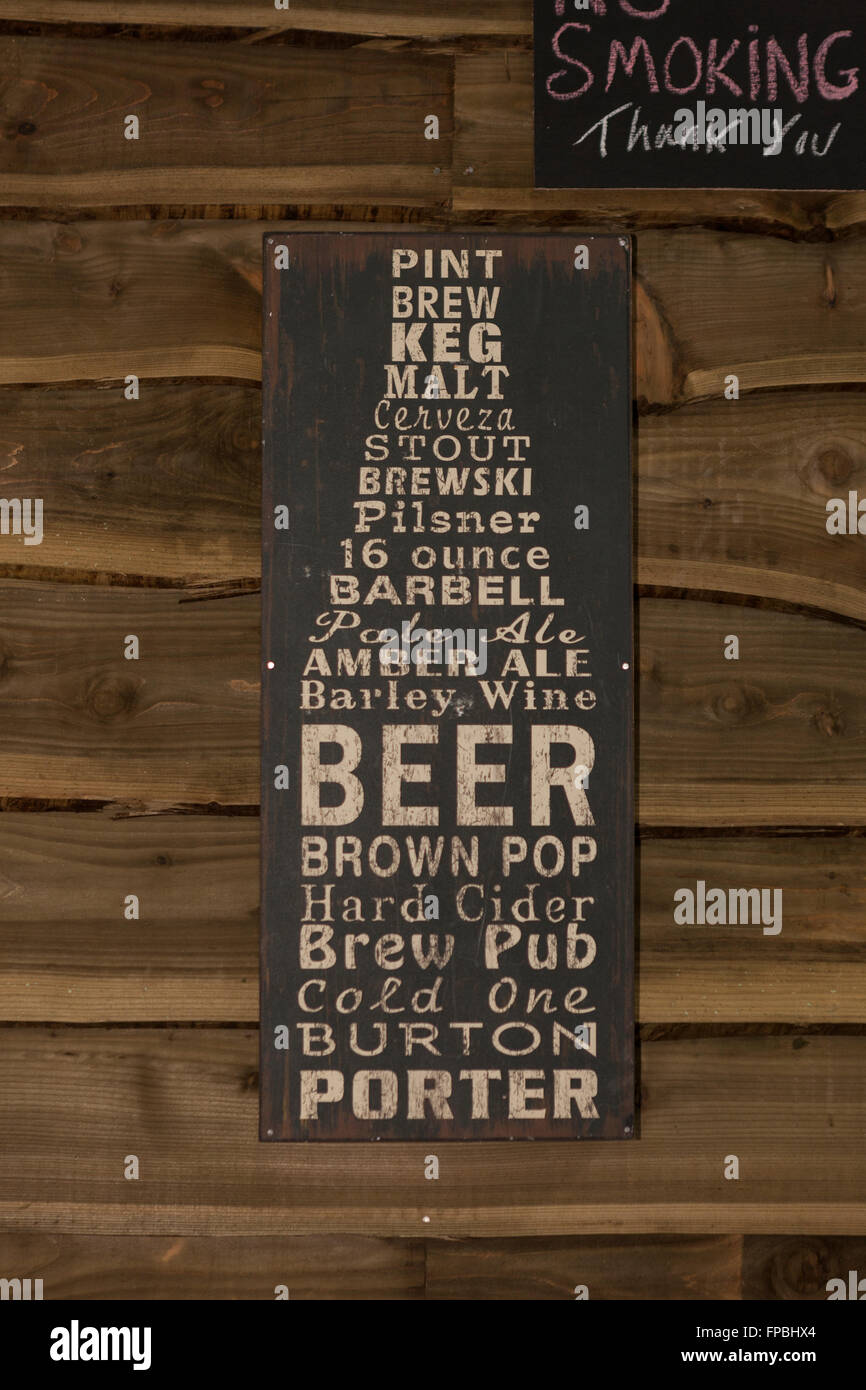 No
Smoking
Thank You
PINT
BREW
KEG
MALT
Cerveza
STOUT
BREWSKI
Pilsner
16 ounce
BARBELL
Pale Ale
AMBER ALE
Barley Wine
BEER
BROWN POP
Hard Cider
Brew Pub
Cold One
BURTON
PORTER
alamy stock photo
FPBHX4
www.alamy.com